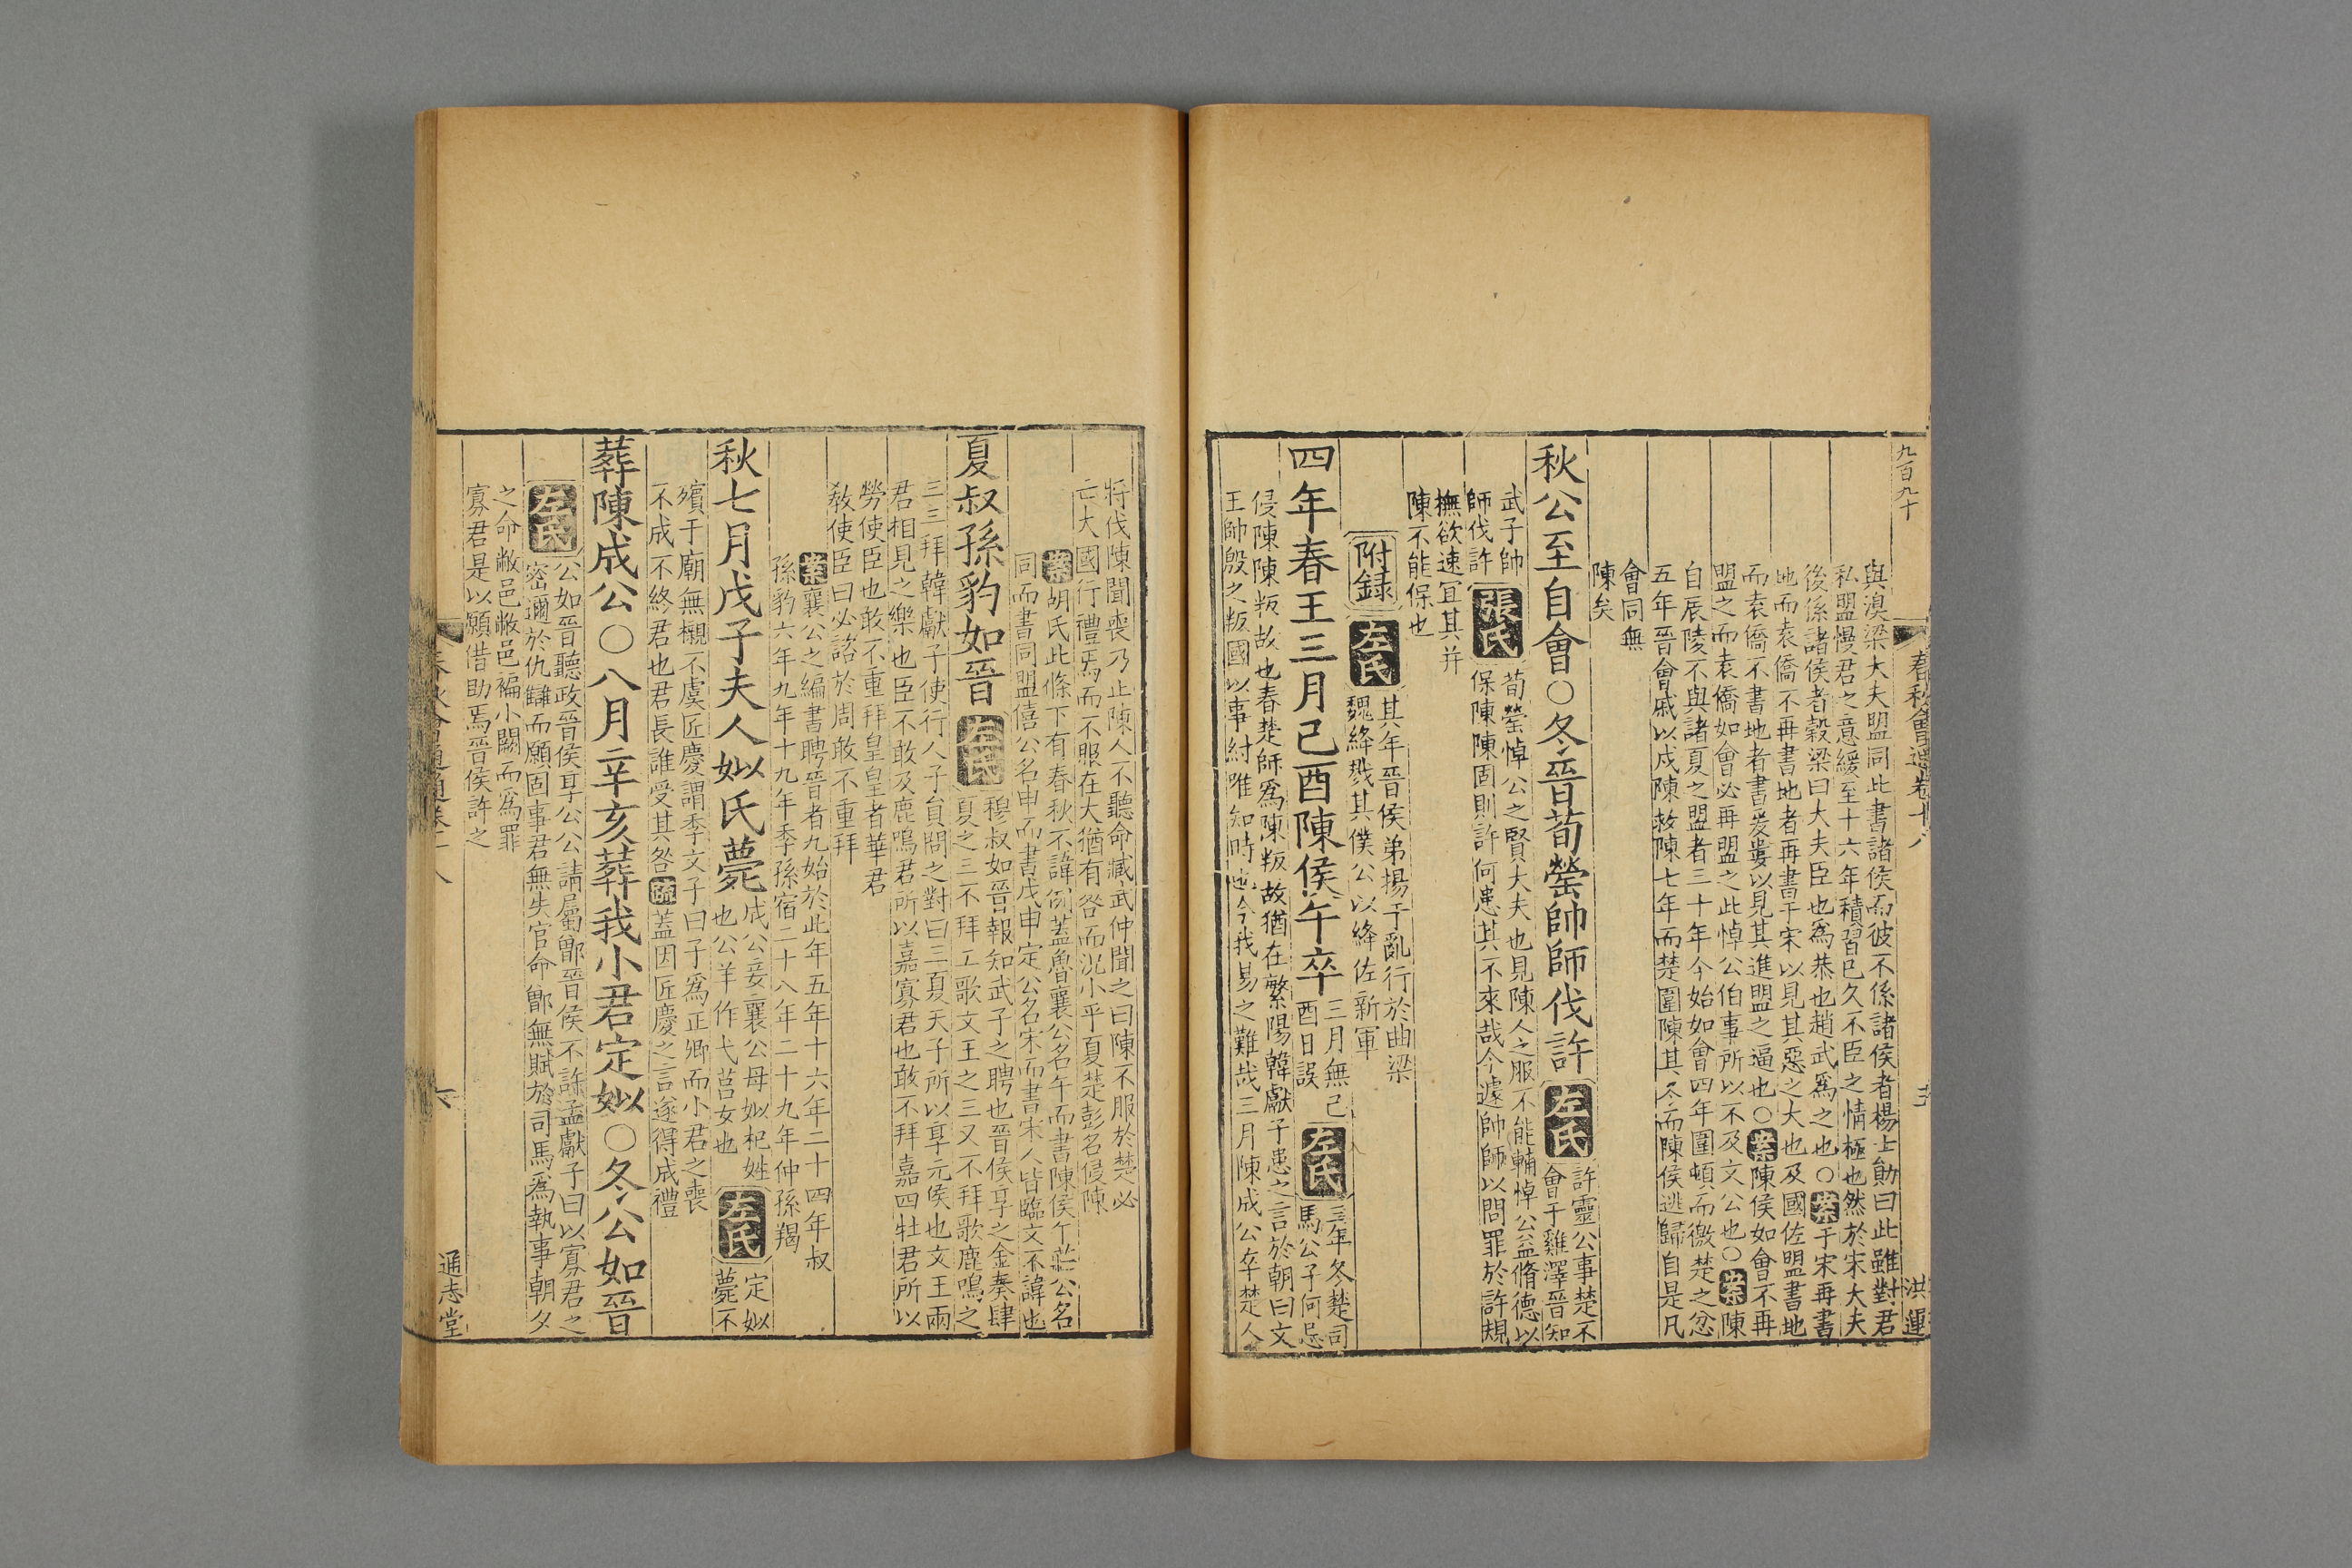 九百九十
春秋會通卷十八
洪運
與溴梁大夫盟同此書諸侯而彼不係諸侯者楊士勛曰此雖對君
私盟慢君之意緩至十六年積習已久不臣之情極也然於宋大夫
後係諸侯者穀梁曰大夫臣也為恭也趙武為之也〇案于宋再書
地而袁僑不再書地者再書于宋以見其惡之大也及國佐盟書地
而袁僑不書地者書爰婁以見其進盟之逼也〇案陳侯如會不再
盟之而袁僑如會必再盟之此悼公伯事所以不及文公也〇案陳
自辰陵不與諸夏之盟者三十年今始如會四年圍頓而徼楚之忿
五年晉會戚以戍陳救陳七年而楚圍陳其冬而陳侯逃歸自是凡
會同無
陳矣
秋公至自會〇冬晉荀罃帥師伐許
左氏
許靈公事楚不
會于雞澤晉知
武子帥
師伐許
張氏
荀罃悼公之賢大夫也見陳人之服不能輔悼公益脩德以
保陳陳固則許何患其不來哉今遽帥師以問罪於許規
撫欲速宜其并
陳不能保也
附録
左氏
其年晉侯弟揚干亂行於曲梁
魏絳戮其僕公以絳佐新軍
四年春王三月己酉陳侯午卒
三月無己
酉日誤
左氏
三年冬楚司
馬公子何忌
侵陳陳叛故也春楚師為陳叛故猶在繁陽韓獻子患之言於朝曰文
王帥殷之叛國以事紂唯知時也今我易之難哉三月陳成公卒楚人
將伐陳聞喪乃止陳人不聽命臧武仲聞之曰陳不服於楚必
亡大國行禮焉而不服在大猶有咎而況小乎夏楚彭名侵陳
案胡氏此條下有春秋不諱例蓋魯襄公名午而書陳侯午莊公名
同而書同盟僖公名申而書戊申定公名宋而書宋人皆臨文不諱也
夏叔孫豹如晉
左氏
穆叔如晉報知武子之聘也晉侯享之金奏肆
夏之三不拜工歌文王之三又不拜歌鹿鳴之
三三拜韓獻子使行人子員問之對曰三夏天子所以享元侯也文王兩
君相見之樂也臣不敢及鹿鳴君所以嘉寡君也敢不拜嘉四牡君所以
勞使臣也敢不重拜皇皇者華君
敎使臣曰必諮於周敢不重拜
案襄公之編書聘晉者九始於此年五年十六年二十四年叔
孫豹六年九年十九年季孫宿二十八年二十九年仲孫羯
秋七月戊子夫人姒氏薨
成公妾襄公母姒杞姓
也公羊作弋莒女也
左氏
定姒
薨不
殯于廟無櫬不虞匠慶謂季文子曰子為正卿而小君之喪
不成不終君也君長誰受其咎
疏
蓋因匠慶之言遂得成禮
葬陳成公〇八月辛亥葬我小君定姒〇冬公如晉
左氏
公如晉聽政晉侯享公公請屬鄫晉侯不許孟獻子曰以寡君之
密邇於仇讎而願固事君無失官命鄫無賦於司馬為執事朝夕
之命敝邑敝邑褊小闕而為罪
寡君是以願借助焉晉侯許之
六
通志堂